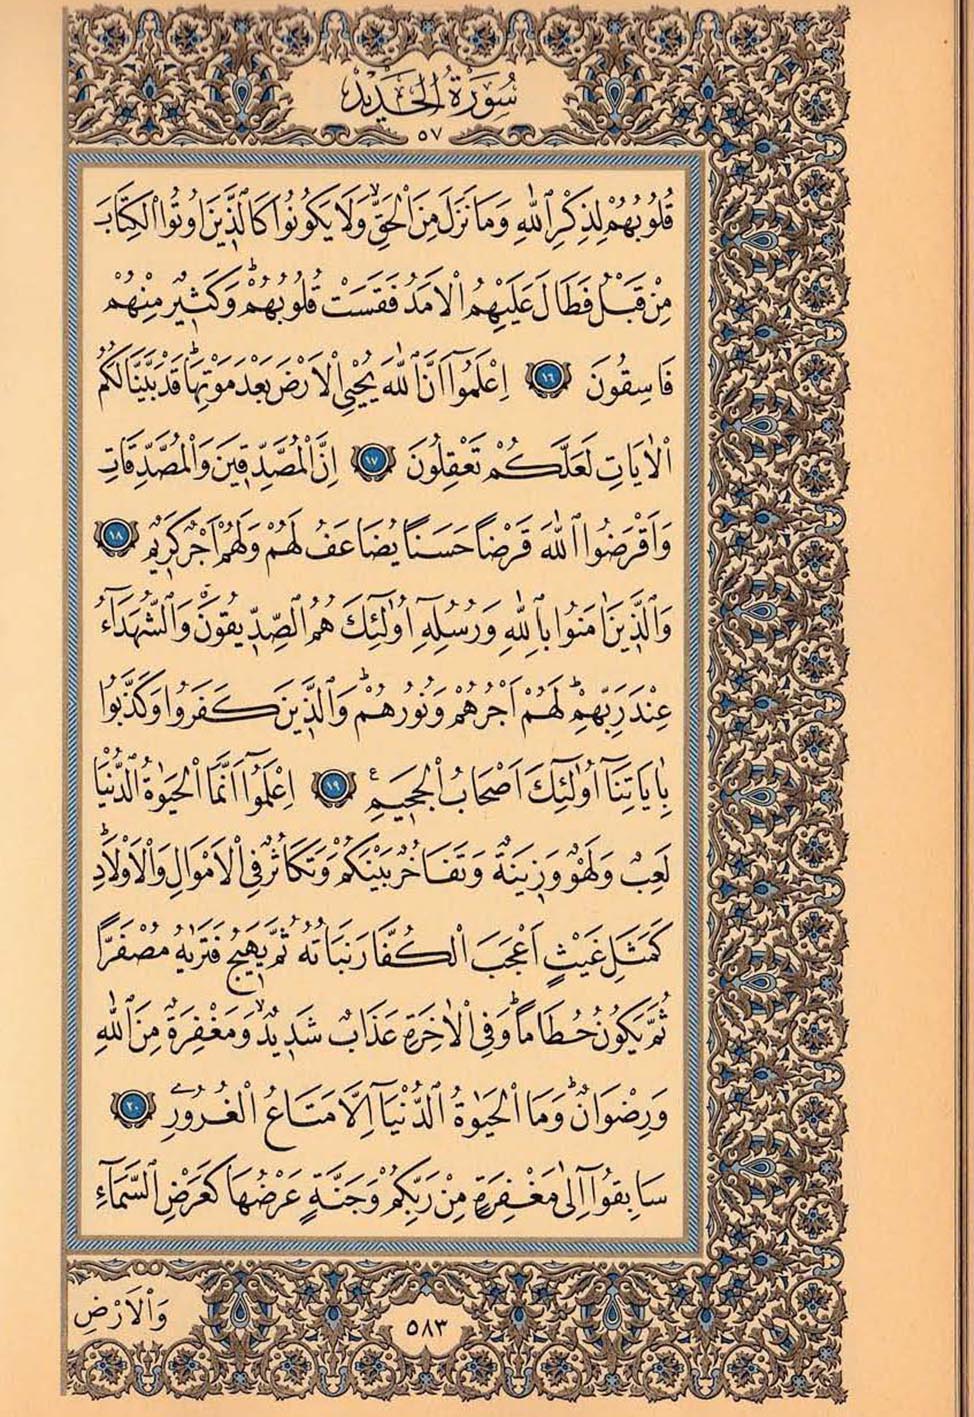 سُورَةُ الْحَدِيدِ
٥٧
قُلُوبُهُمْ لِذِكْرِ اللّٰهِ وَمَا نَزَلَ مِنَ الْحَقِّۙ وَلَا يَكُونُوا كَالَّذِينَ اُوتُوا الْكِتَابَ
مِنْ قَبْلُ فَطَالَ عَلَيْهِمُ الْاَمَدُ فَقَسَتْ قُلُوبُهُمْۜ وَكَثِيرٌ مِنْهُمْ
فَاسِقُونَ ﴿١٦﴾ اِعْلَمُٓوا اَنَّ اللّٰهَ يُحْيِي الْاَرْضَ بَعْدَ مَوْتِهَاۜ قَدْ بَيَّنَّا لَكُمُ
الْاٰيَاتِ لَعَلَّكُمْ تَعْقِلُونَ ﴿١٧﴾ اِنَّ الْمُصَّدِّقِينَ وَالْمُصَّدِّقَاتِ
وَاَقْرَضُوا اللّٰهَ قَرْضًا حَسَنًا يُضَاعَفُ لَهُمْ وَلَهُمْ اَجْرٌ كَرِيمٌ ﴿١٨﴾
وَالَّذِينَ اٰمَنُوا بِاللّٰهِ وَرُسُلِهِٓ اُولٰٓئِكَ هُمُ الصِّدِّيقُونَۗ وَالشُّهَدَٓاءُ
عِنْدَ رَبِّهِمْۜ لَهُمْ اَجْرُهُمْ وَنُورُهُمْۜ وَالَّذِينَ كَفَرُوا وَكَذَّبُوا
بِاٰيَاتِنَٓا اُولٰٓئِكَ اَصْحَابُ الْجَحِيمِ ع ﴿١٩﴾ اِعْلَمُٓوا اَنَّمَا الْحَيٰوةُ الدُّنْيَا
لَعِبٌ وَلَهْوٌ وَزِينَةٌ وَتَفَاخُرٌ بَيْنَكُمْ وَتَكَاثُرٌ فِي الْاَمْوَالِ وَالْاَوْلَادِۜ
كَمَثَلِ غَيْثٍ اَعْجَبَ الْكُفَّارَ نَبَاتُهُ ثُمَّ يَهِيجُ فَتَرٰيهُ مُصْفَرًّا
ثُمَّ يَكُونُ حُطَامًاۜ وَفِي الْاٰخِرَةِ عَذَابٌ شَدِيدٌۙ وَمَغْفِرَةٌ مِنَ اللّٰهِ
وَرِضْوَانٌۜ وَمَا الْحَيٰوةُ الدُّنْيَٓا اِلَّا مَتَاعُ الْغُرُورِ ﴿٢٠﴾
سَابِقُٓوا اِلٰى مَغْفِرَةٍ مِنْ رَبِّكُمْ وَجَنَّةٍ عَرْضُهَا كَعَرْضِ السَّمَٓاءِ
وَالْاَرْضِ
٥٨٣